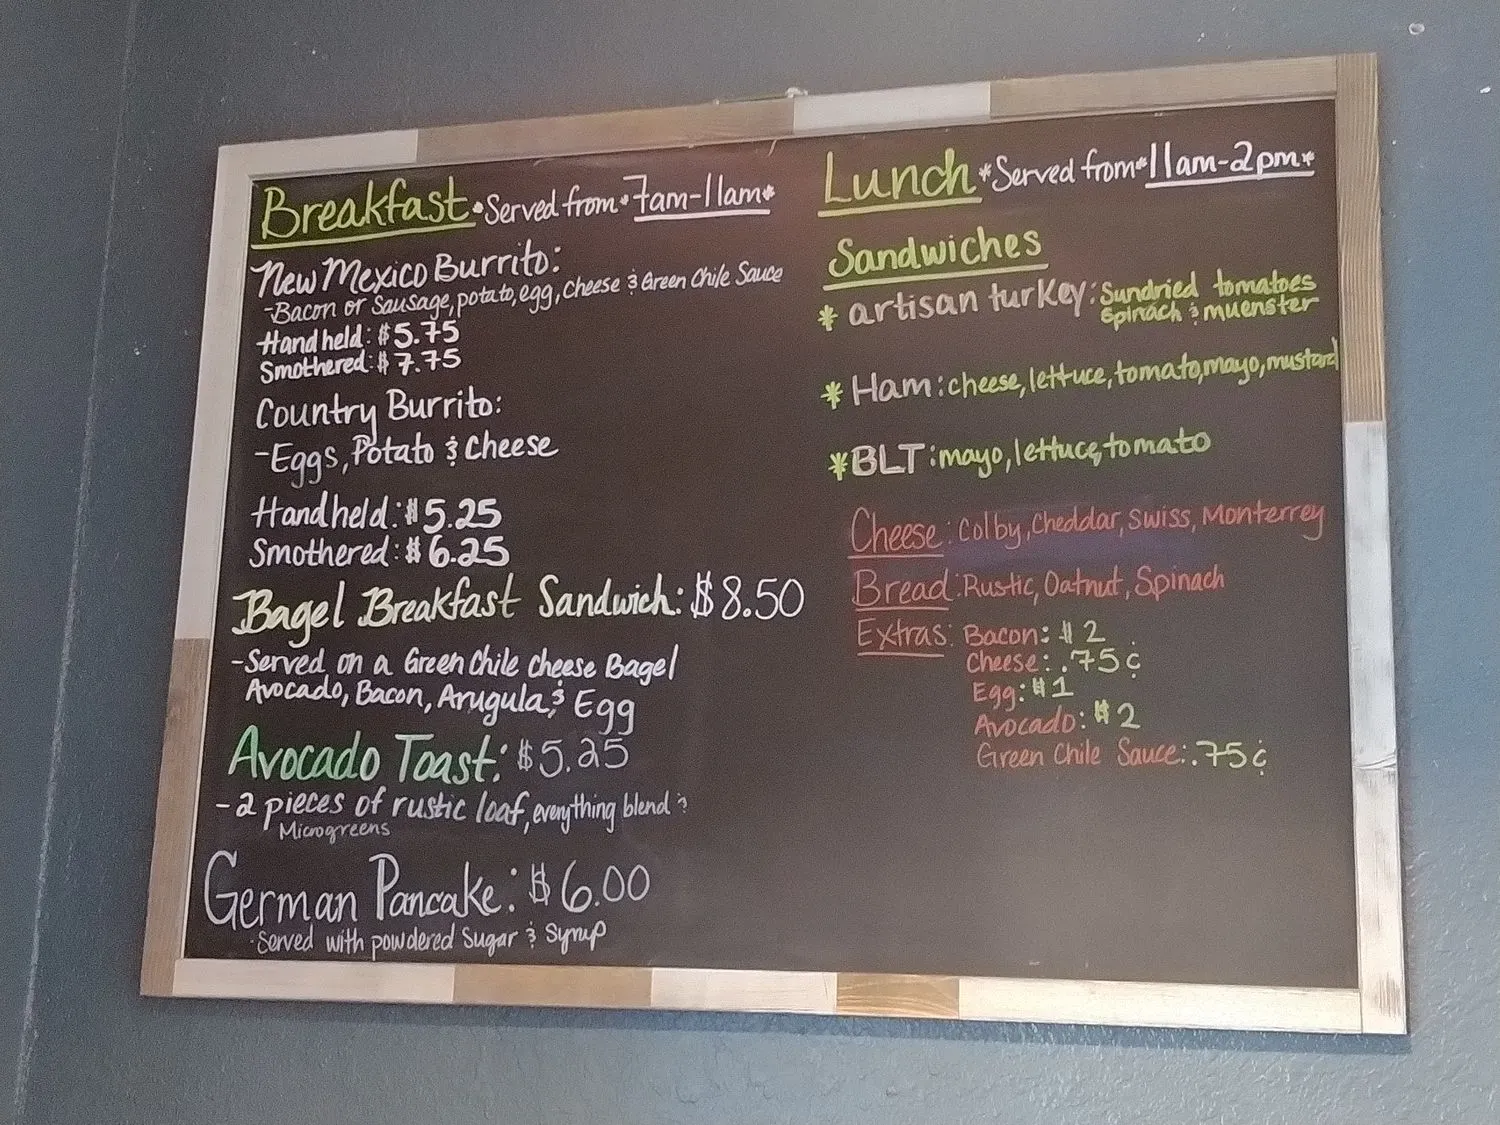 Breakfast •Served from• 7am-11am*
New Mexico Burrito:
-Bacon or Sausage, potato, egg, cheese & Green Chile Sauce
Handheld: $5.75
Smothered: $7.75
Country Burrito:
-Eggs, Potato & Cheese
Handheld: $5.25
Smothered: $6.25
Bagel Breakfast Sandwich: $8.50
-Served on a Green Chile Cheese Bagel
Avocado, Bacon, Arugula, & Egg
Avocado Toast: $5.25
-2 pieces of rustic loaf, everything blend &
Microgreens
German Pancake: $6.00
·Served with powdered Sugar & Syrup
Lunch *Served from* 11am-2pm*
Sandwiches
* artisan turkey: Sundried tomatoes
Spinach & muenster
* Ham: cheese, lettuce, tomato, mayo, mustard
* BLT: mayo, lettuce, tomato
Cheese: Colby, Cheddar, Swiss, Monterrey
Bread: Rustic, Oatnut, Spinach
Extras: Bacon: $2
Cheese: .75¢
Egg: $1
Avocado: $2
Green Chile Sauce: .75¢